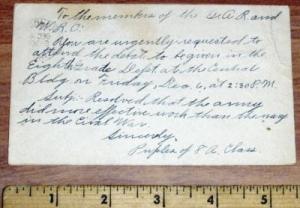 To the members of the G.A.R and
W.R.C:
You are urgently requested to
attend the debate to be given in the
Eighth Grade Dept at the Central
Bldg on Friday, Dec. 6, at 2:30 P.M.
Subj:- Resolved, that the army
did more effective work than the navy
in the Civil War.
Sincerely,
Pupils of 8 A. Class.
1 2 3 4 5